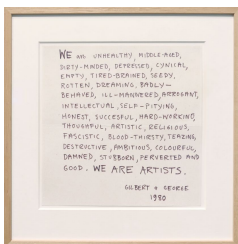 WE are UNHEALTHY, MIDDLE-AGED,
DIRTY-MINDED, DEPRESSED, CYNICAL,
EMPTY, TIRED-BRAINED, SEEDY,
ROTTEN, DREAMING, BADLY-
BEHAVED, ILL-MANNERED, ARROGANT,
INTELLECTUAL, SELF-PITYING,
HONEST, SUCCESSFUL, HARD-WORKING,
THOUGHTFUL, ARTISTIC, RELIGIOUS,
FASCISTIC, BLOOD-THIRSTY, TEASING,
DESTRUCTIVE, AMBITIOUS, COLOURFUL,
DAMNED, STUBBORN, PERVERTED AND
GOOD. WE ARE ARTISTS.
GILBERT + GEORGE
1980